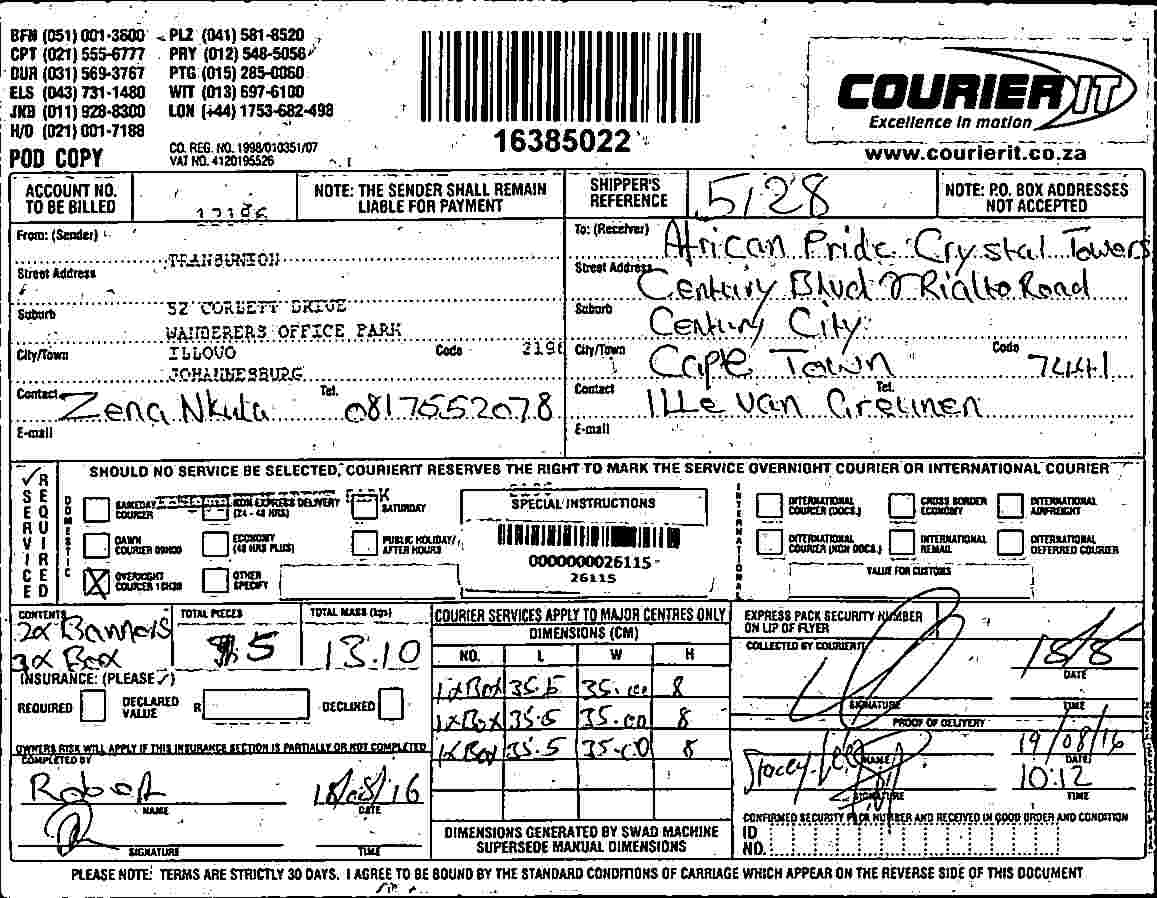 BFN (051) 001-3600 PLZ (041) 581-8520
CPT (021) 555-6777 PRY (012) 548-5056
DUR (031) 569-3767 PTG (015) 285-0060
ELS (043) 731-1480 WIT (013) 697-6100
JNB (011) 928-8300 LON (+44) 1753-682-498
H/O (021) 001-7188
POD COPY
CO. REG. NO. 1998/010351/07
VAT NO. 4120195526
16385022
COURIER IT
Excellence in motion
www.courierit.co.za
ACCOUNT NO. TO BE BILLED
NOTE: THE SENDER SHALL REMAIN LIABLE FOR PAYMENT
SHIPPER'S REFERENCE 5128
NOTE: P.O. BOX ADDRESSES NOT ACCEPTED
From: (Sender) TRANSUNION
Street Address
Suburb 52 CORLETT DRIVE
WANDERERS OFFICE PARK
City/Town ILLOVO Code 2196
JOHANNESBURG
Contact Zena Nkula Tel. 0817552078
E-mail
To: (Receiver) African Pride Crystal Towers
Street Address Century Blvd & Rialto Road
Suburb Century City
City/Town Cape Town Code 7441
Contact Ille van Greunen Tel.
E-mail
SERVICE REQUIRED
SHOULD NO SERVICE BE SELECTED, COURIERIT RESERVES THE RIGHT TO MARK THE SERVICE OVERNIGHT COURIER OR INTERNATIONAL COURIER
DOMESTIC
SAMEDAY COURIER
NON EXPRESS DELIVERY (24 - 48 HRS)
SATURDAY
DAWN COURIER 09H00
ECONOMY (48 HRS PLUS)
PUBLIC HOLIDAY/ AFTER HOURS
OVERNIGHT COURIER 10H30
OTHER SPECIFY
SPECIAL INSTRUCTIONS
0000000026115
26115
INTERNATIONAL
INTERNATIONAL COURIER (DOCS.)
CROSS BORDER ECONOMY
INTERNATIONAL AIRFREIGHT
INTERNATIONAL COURIER (NON DOCS.)
INTERNATIONAL REMAIL
INTERNATIONAL DEFERRED COURIER
VALUE FOR CUSTOMS
CONTENTS 2x Banners
3x Box
TOTAL PIECES 5
TOTAL MASS (kgs) 13.10
INSURANCE: (PLEASE ✓)
REQUIRED DECLARED VALUE R DECLINED
OWNERS RISK WILL APPLY IF THIS INSURANCE SECTION IS PARTIALLY OR NOT COMPLETED
COMPLETED BY
Robert 18/08/16
NAME DATE
SIGNATURE TIME
COURIER SERVICES APPLY TO MAJOR CENTRES ONLY
DIMENSIONS (CM)
NO. L W H
1xBox 35.5 35.00 8
1xBox 35.5 35.00 8
1xBox 35.5 35.00 8
DIMENSIONS GENERATED BY SWAD MACHINE SUPERSEDE MANUAL DIMENSIONS
EXPRESS PACK SECURITY NUMBER ON LIP OF FLYER
COLLECTED BY COURIERIT
18/8
DATE
SIGNATURE TIME
PROOF OF DELIVERY
Stacey-Lee 19/08/16
NAME DATE
10:12
SIGNATURE TIME
CONFIRMED SECURITY PACK NUMBER AND RECEIVED IN GOOD ORDER AND CONDITION
ID NO.
PLEASE NOTE: TERMS ARE STRICTLY 30 DAYS. I AGREE TO BE BOUND BY THE STANDARD CONDITIONS OF CARRIAGE WHICH APPEAR ON THE REVERSE SIDE OF THIS DOCUMENT